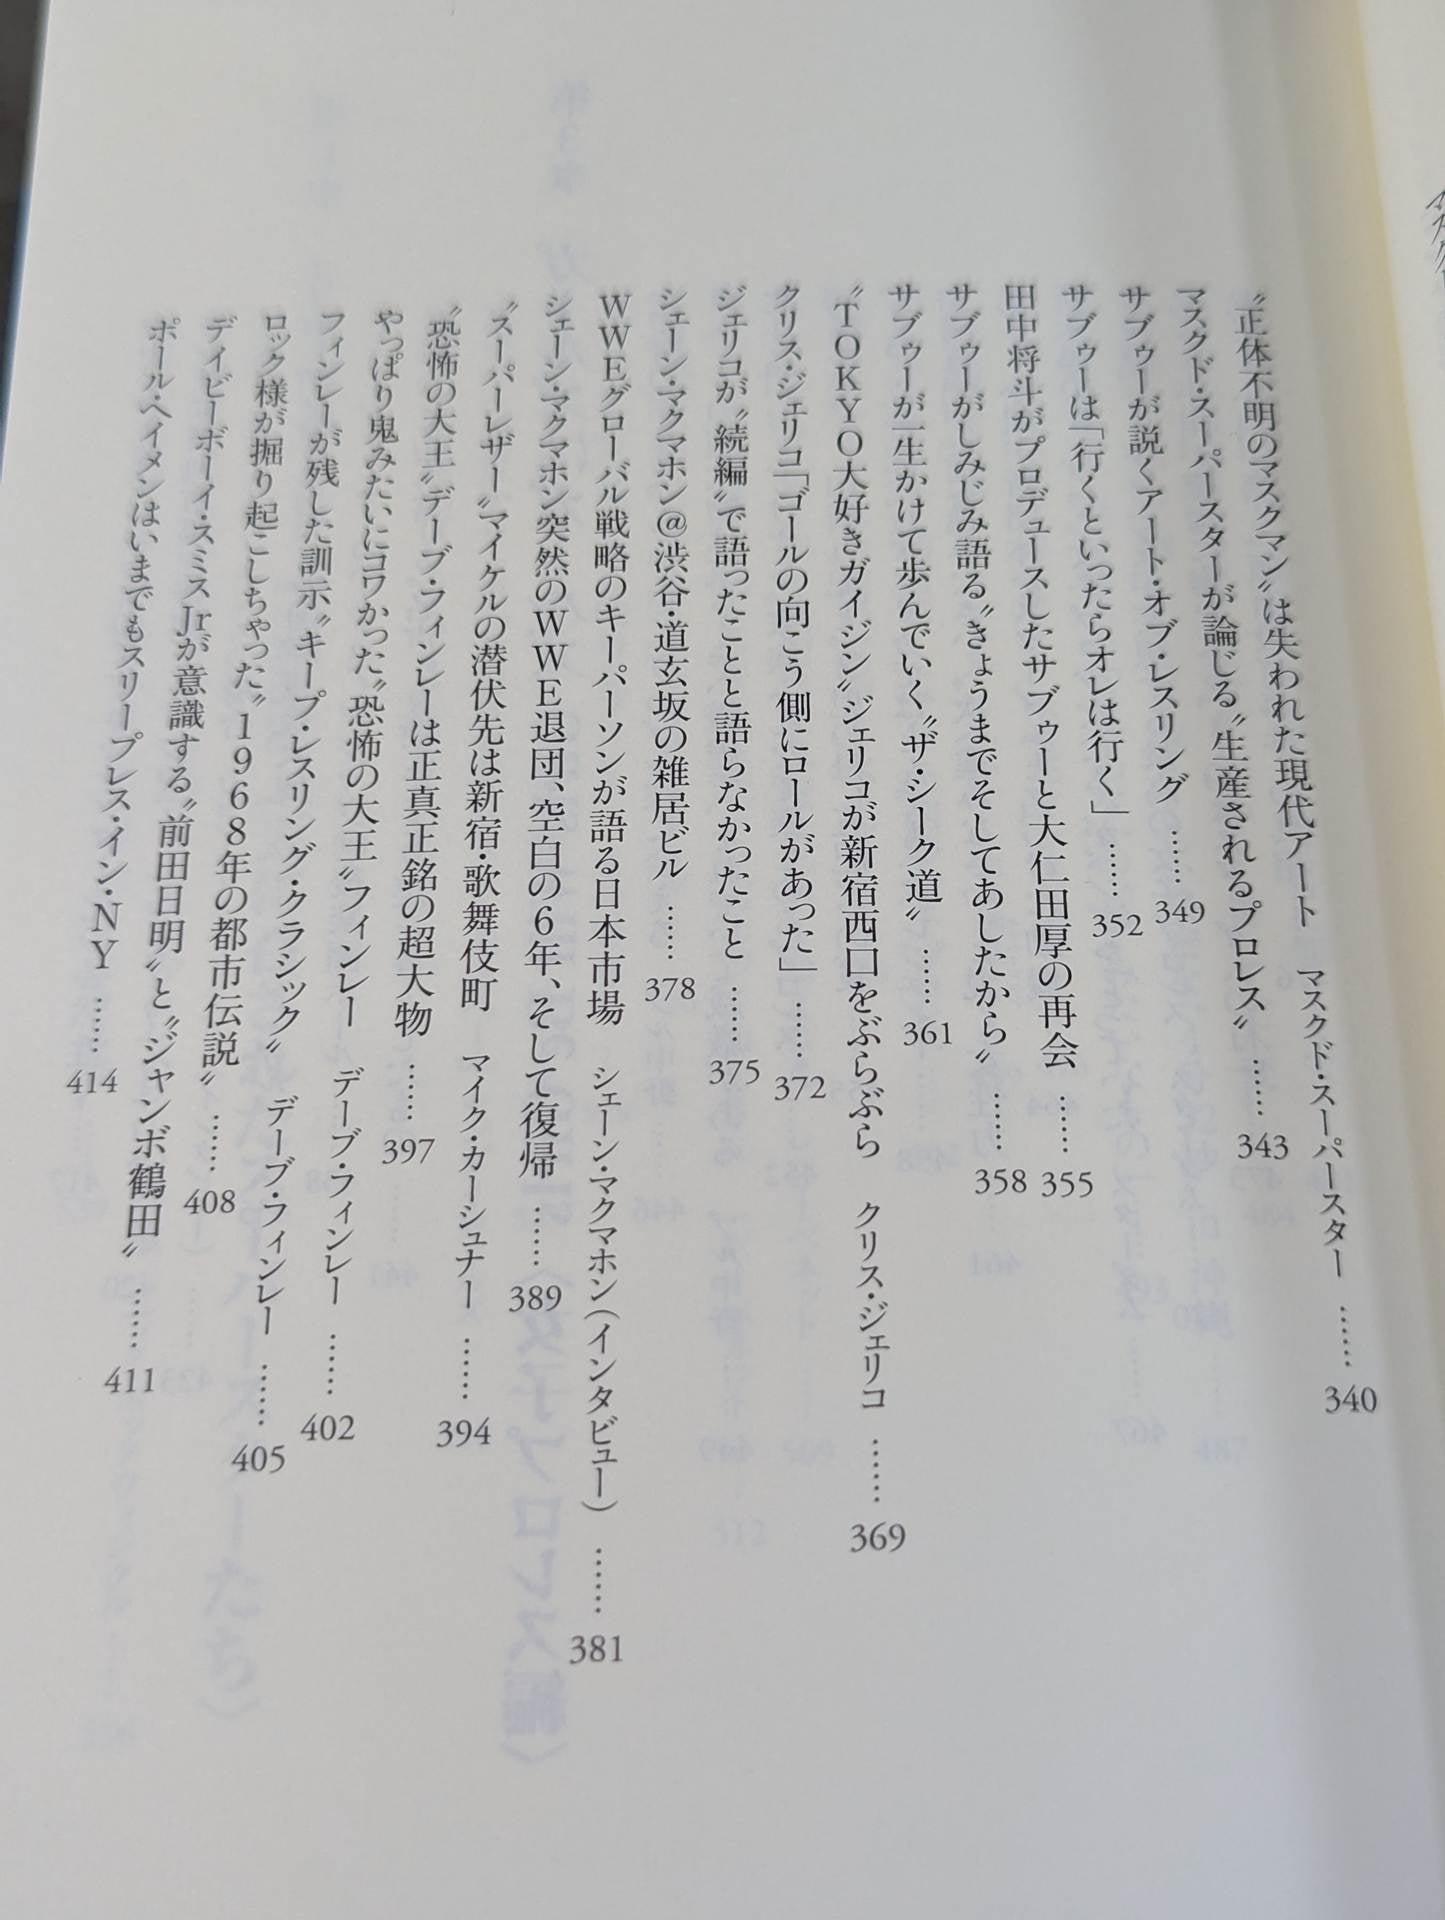 〝正体不明のマスクマン〟は失われた現代アート　マスクド・スーパースター ……340
マスクド・スーパースターが論じる〝生産されるプロレス〟 ……343
サブゥーが説くアート・オブ・レスリング ……349
サブゥーは「行くといったらオレは行く」 ……352
田中将斗がプロデュースしたサブゥーと大仁田厚の再会 ……355
サブゥーがしみじみ語る〝きょうまでそしてあしたから〟 ……358
サブゥーが一生かけて歩んでいく〝ザ・シーク道〟 ……361
〝TOKYO大好きガイジン〟ジェリコが新宿西口をぶらぶら　クリス・ジェリコ ……369
クリス・ジェリコ「ゴールの向こう側にロールがあった」 ……372
ジェリコが〝続編〟で語ったことと語らなかったこと ……375
シェーン・マクマホン@渋谷・道玄坂の雑居ビル ……378
WWEグローバル戦略のキーパーソンが語る日本市場　シェーン・マクマホン（インタビュー） ……381
シェーン・マクマホン突然のWWE退団、空白の6年、そして復帰 ……389
〝スーパーレザー〟マイケルの潜伏先は新宿・歌舞伎町　マイク・カーシュナー ……394
〝恐怖の大王〟デーブ・フィンレーは正真正銘の超大物 ……397
やっぱり鬼みたいにコワかった〝恐怖の大王〟フィンレー　デーブ・フィンレー ……402
フィンレーが残した訓示〝キープ・レスリング・クラシック〟　デーブ・フィンレー ……405
ロック様が掘り起こしちゃった〝1968年の都市伝説〟 ……408
デイビーボーイ・スミスJrが意識する〝前田日明〟と〝ジャンボ鶴田〟 ……411
ポール・ヘイメンはいまでもスリープレス・イン・NY ……414